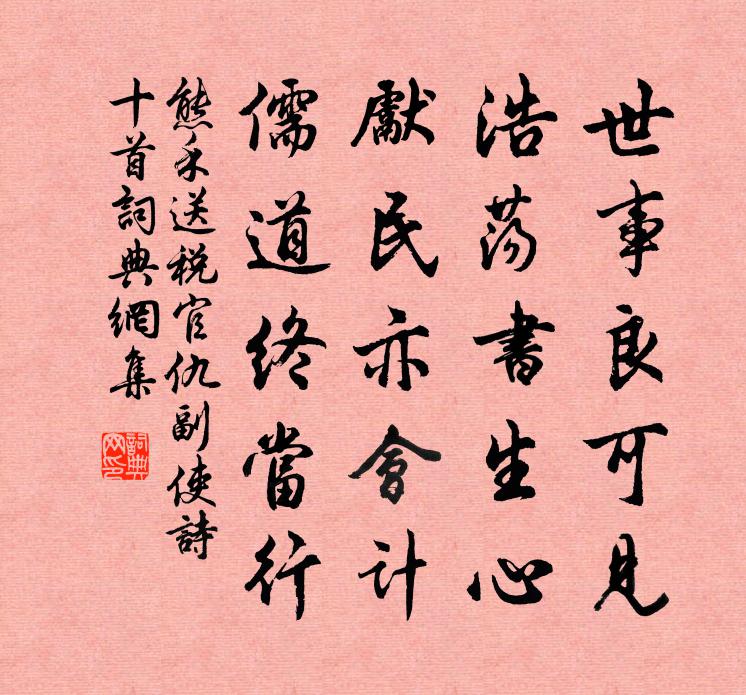 世事良可見
浩蕩書生心
獻民亦會計
儒道終當行
熊禾送税官仇副使詩
十首詞典網集
詞典網印